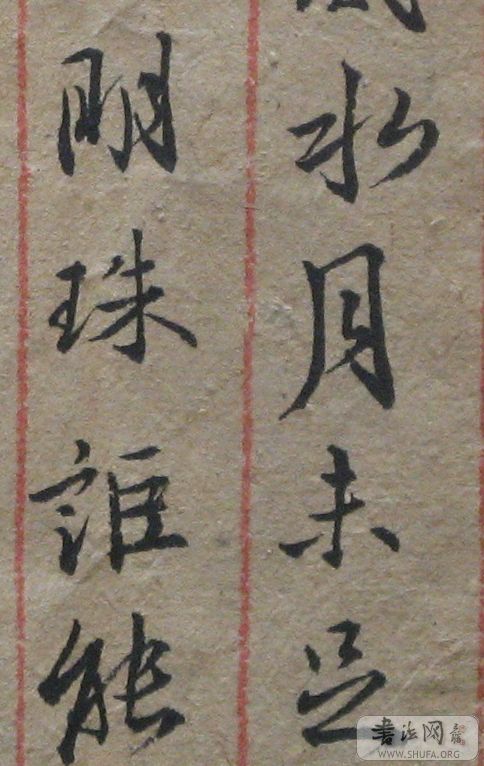 水月未足
明珠詎能
書法网
WWW.SHUFA.ORG